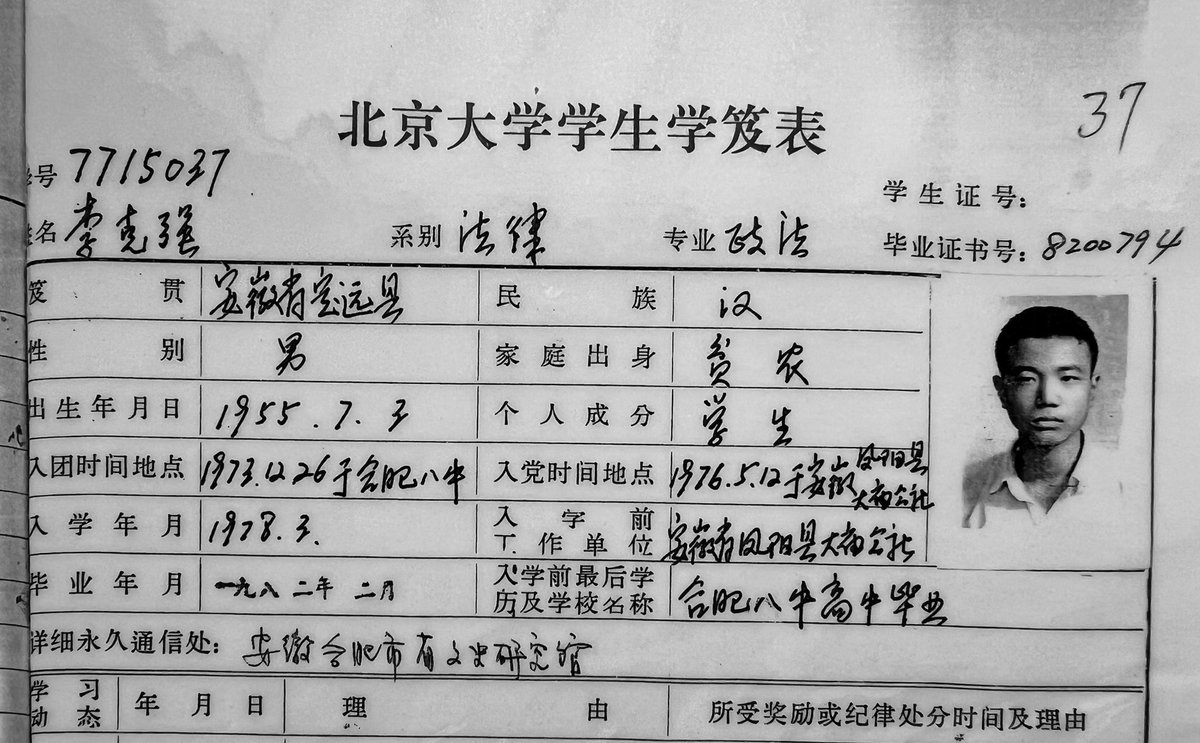 37
北京大学学生学笈表
学号 7715037
学生证号：
姓名 李克强 系别 法律 专业 政法 毕业证书号：8200794
笈贯 安徽省定远县 民族 汉
性别 男 家庭出身 贫农
出生年月日 1955.7.3 个人成分 学生
入团时间地点 1973.12.26于合肥八中 入党时间地点 1976.5.12于安徽凤阳县大庙公社
入学年月 1978.3. 入学前工作单位 安徽省凤阳县大庙公社
毕业年月 一九八二年二月 入学前最后学历及学校名称 合肥八中高中毕业
详细永久通信处：安徽合肥市省文史研究馆
学习动态 年月日 理由 所受奖励或纪律处分时间及理由